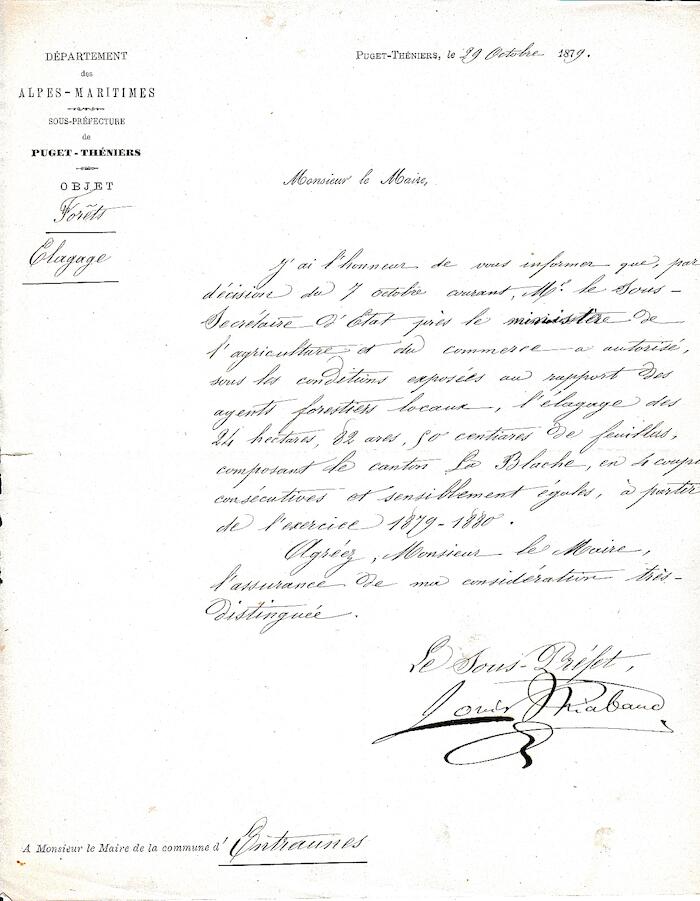 DÉPARTEMENT
des
ALPES-MARITIMES
SOUS-PRÉFECTURE
de
PUGET-THÉNIERS
OBJET
Forêts
Elagage
PUGET-THÉNIERS, le 29 Octobre 1879.
Monsieur le Maire,
J'ai l'honneur de vous informer que, par
décision du 7 octobre courant, Mr. le Sous-
Secrétaire d'Etat près le ministère de
l'agriculture et du commerce a autorisé,
sous les conditions exposées au rapport des
agents forestiers locaux, l'élagage des
24 hectares, 82 ares, 50 centiares de feuillus,
composant le canton La Blache, en 4 coupes
consécutives et sensiblement égales, à partir
de l'exercice 1879-1880.
Agréez, Monsieur le Maire,
l'assurance de ma considération très-
distinguée.
Le Sous-Préfet,
Louis
A Monsieur le Maire de la commune d'Entraunes